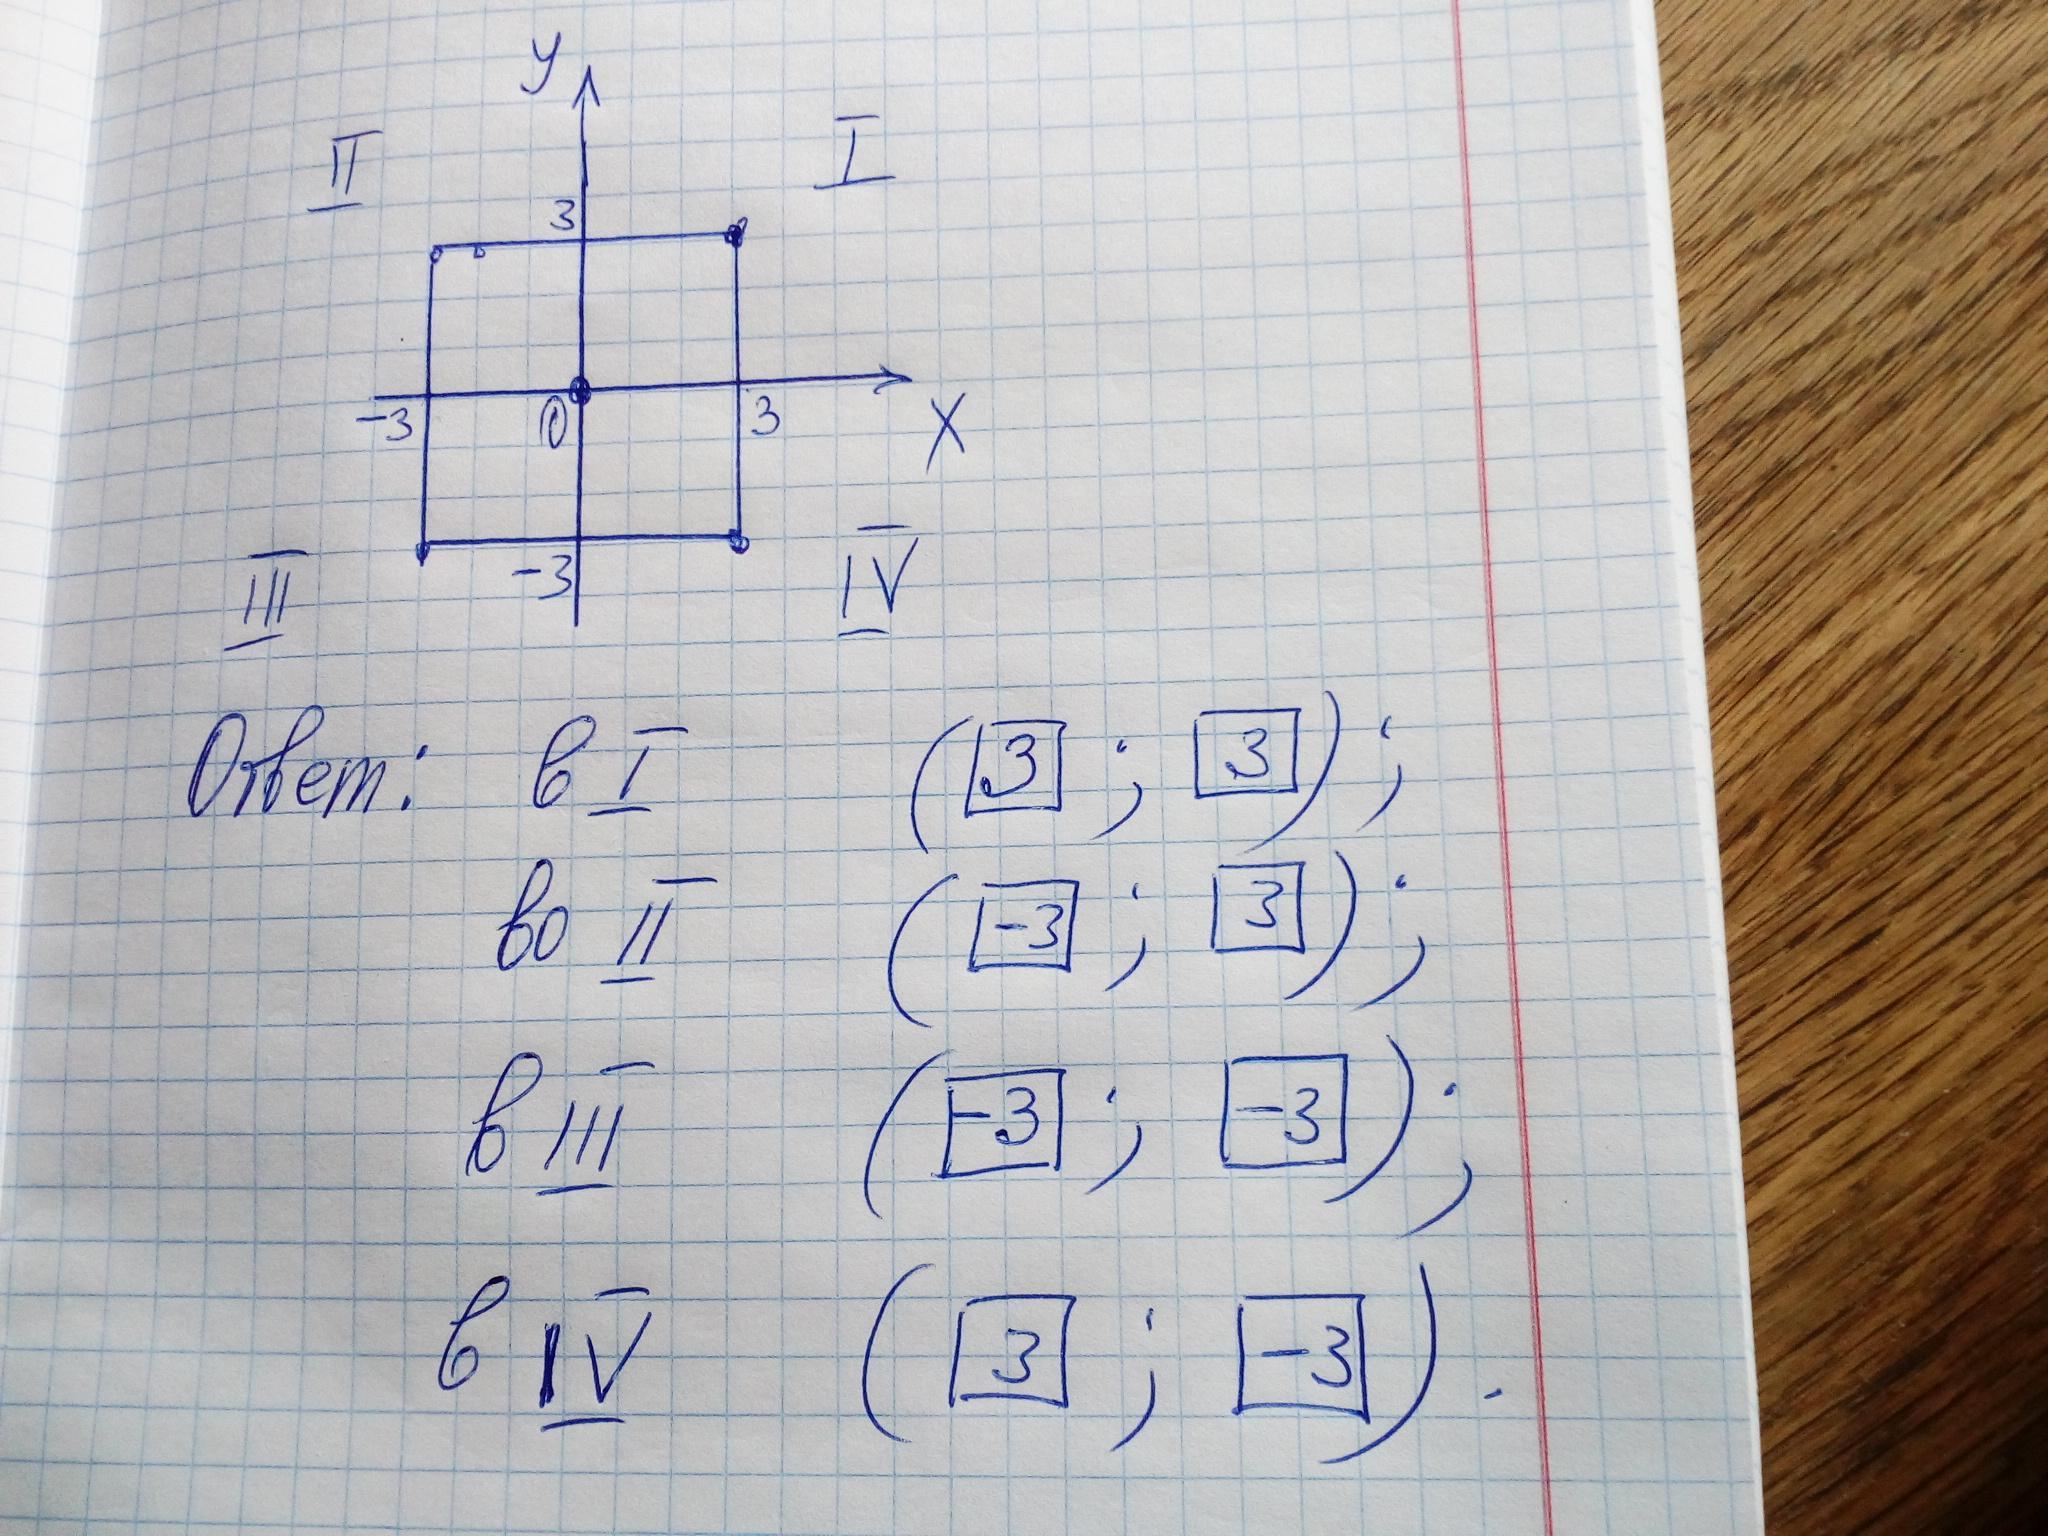 y
II I
3
-3 0 3 X
-3
III IV
Ответ: в I (3 ; 3);
во II (-3 ; 3);
в III (-3 ; -3);
в IV (3 ; -3).